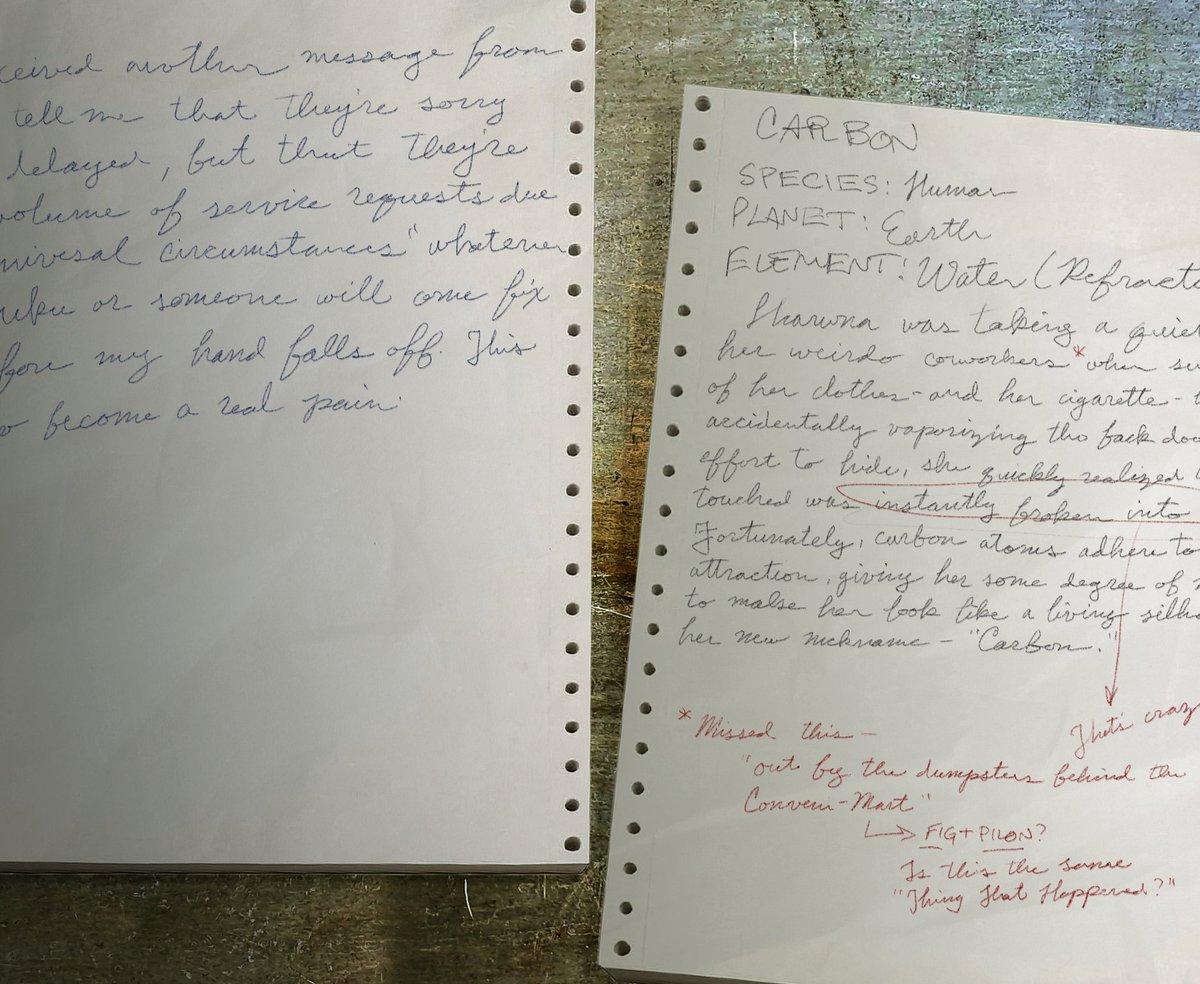 ceived another message from
tell me that they're sorry
delayed, but that they're
volume of service requests due
niversal circumstances" whatever
or someone will come fix
fore my hand falls off. This
become a real pain.
CARBON
SPECIES: Human
PLANET: Earth
ELEMENT: Water (Refracte
was taking a quiet
her weirdo coworkers* when su
of her clothes - and her cigarette -
accidentally vaporizing the back doo
effort to hide, she quickly realized
touched was instantly broken into
Fortunately, carbon atoms adhere to
attraction, giving her some degree of
to make her look like a living silho
her new nickname - "Carbon."
* Missed this -
That's crazy
"out by the dumpsters behind the
Conveni-Mart"
FIG + PILON?
Is this the same
"Thing that Happened?"